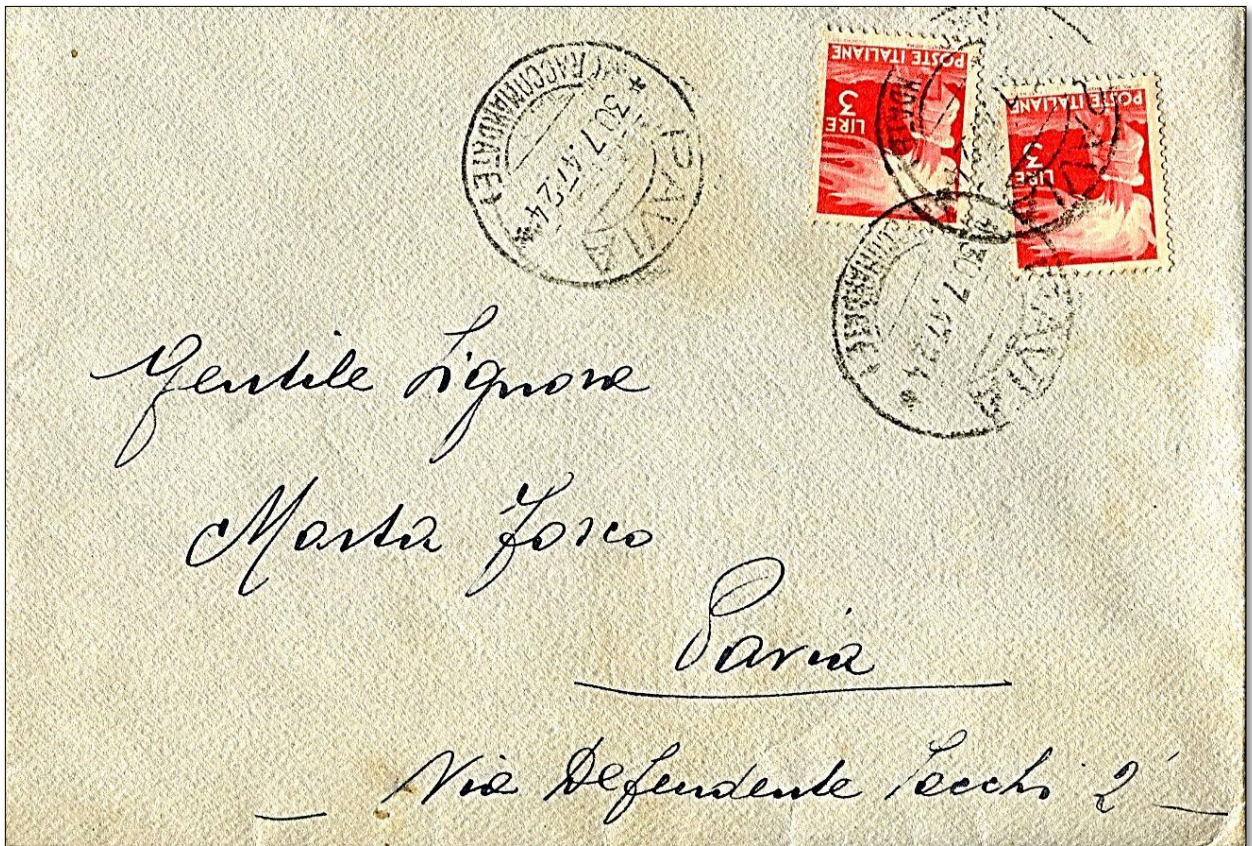 PAVIA
(RACCOMANDATE)
30.7.47.24
POSTE ITALIANE
LIRE
3
POSTE ITALIANE
LIRE
3
PAVIA
30.7.47.24
Gentile Signora
Marta
Pavia
Via Defendente Sacchi 2